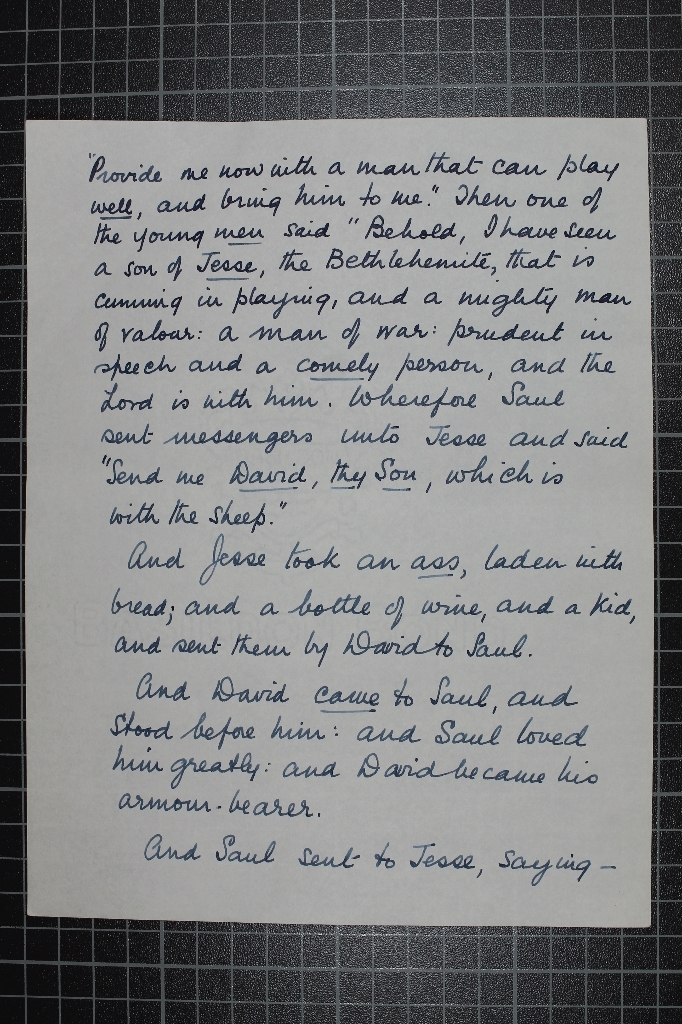 "Provide me now with a man that can play
well, and bring him to me." Then one of
the young men said "Behold, I have seen
a son of Jesse, the Bethlehemite, that is
cunning in playing, and a mighty man
of valour: a man of war: prudent in
speech and a comely person, and the
Lord is with him. Wherefore Saul
sent messengers unto Jesse and said
"Send me David, thy Son, which is
with the sheep."
And Jesse took an ass, laden with
bread; and a bottle of wine, and a kid,
and sent them by David to Saul.
And David came to Saul, and
Stood before him: and Saul loved
him greatly: and David became his
armour-bearer.
And Saul sent to Jesse, saying—